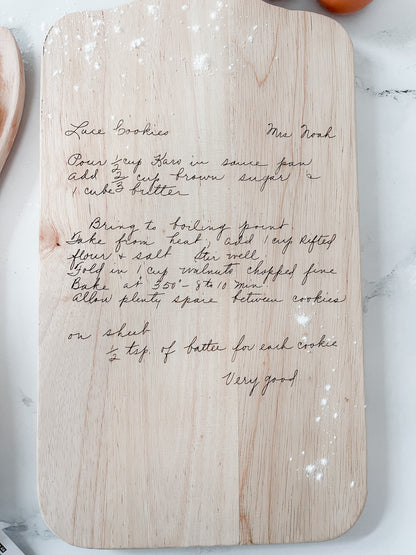 Lace Cookies Mrs Noah
Pour 1/2 cup Karo in sauce pan
add 2/3 cup brown sugar &
1 cube butter
Bring to boiling point.
Take from heat, add 1 cup sifted
flour & salt Stir well,
Fold in 1 cup walnuts chopped fine
Bake at 350° - 8 to 10 min
Allow plenty space between cookies
on sheet
1/2 tsp. of batter for each cookie
Very good